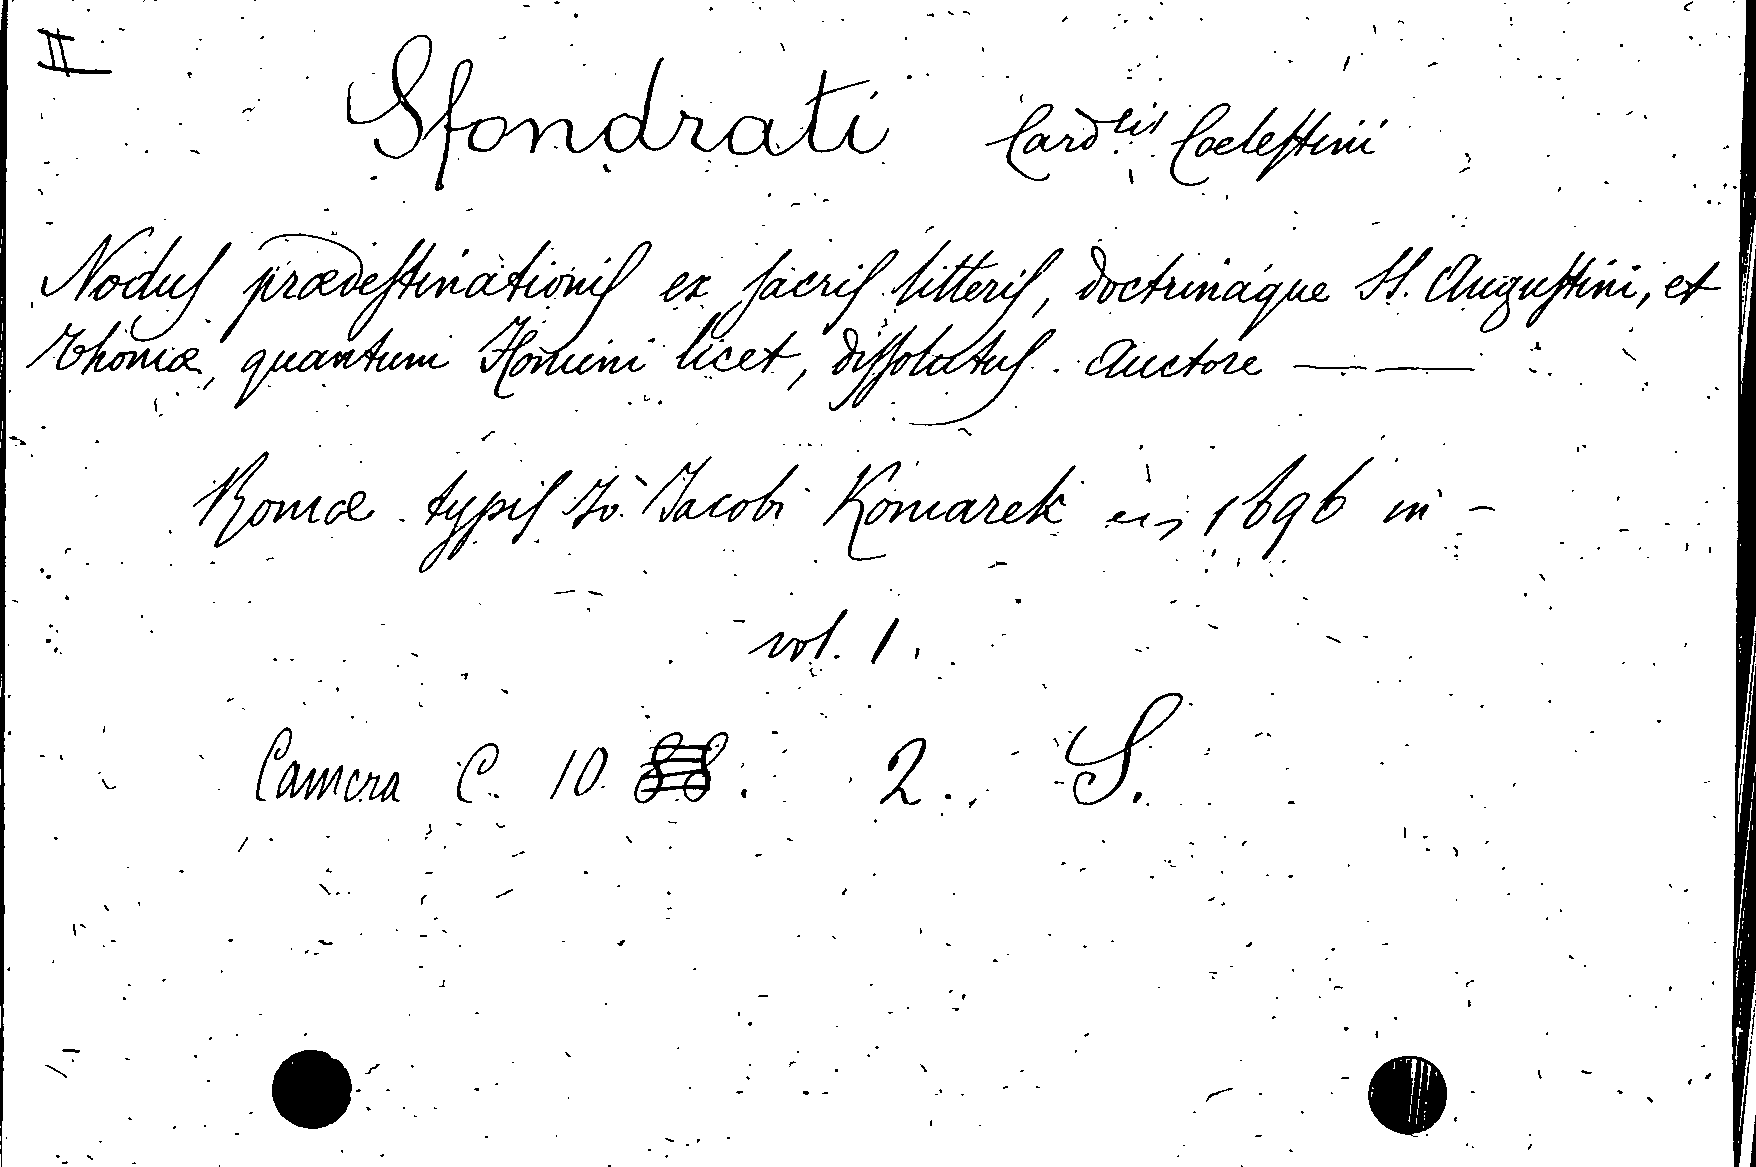 II
Sfondrati Card^lis Coelestini
Nodus prædestinationis ex sacris litteris, doctrinaque SS. Augustini, et
Thomæ, quantum Homini licet, dissolutus. Auctore — —
Romæ typis Jo. Jacobi Komarek 1696 in -
vol. 1.
Camera C. 10 . 2. S.